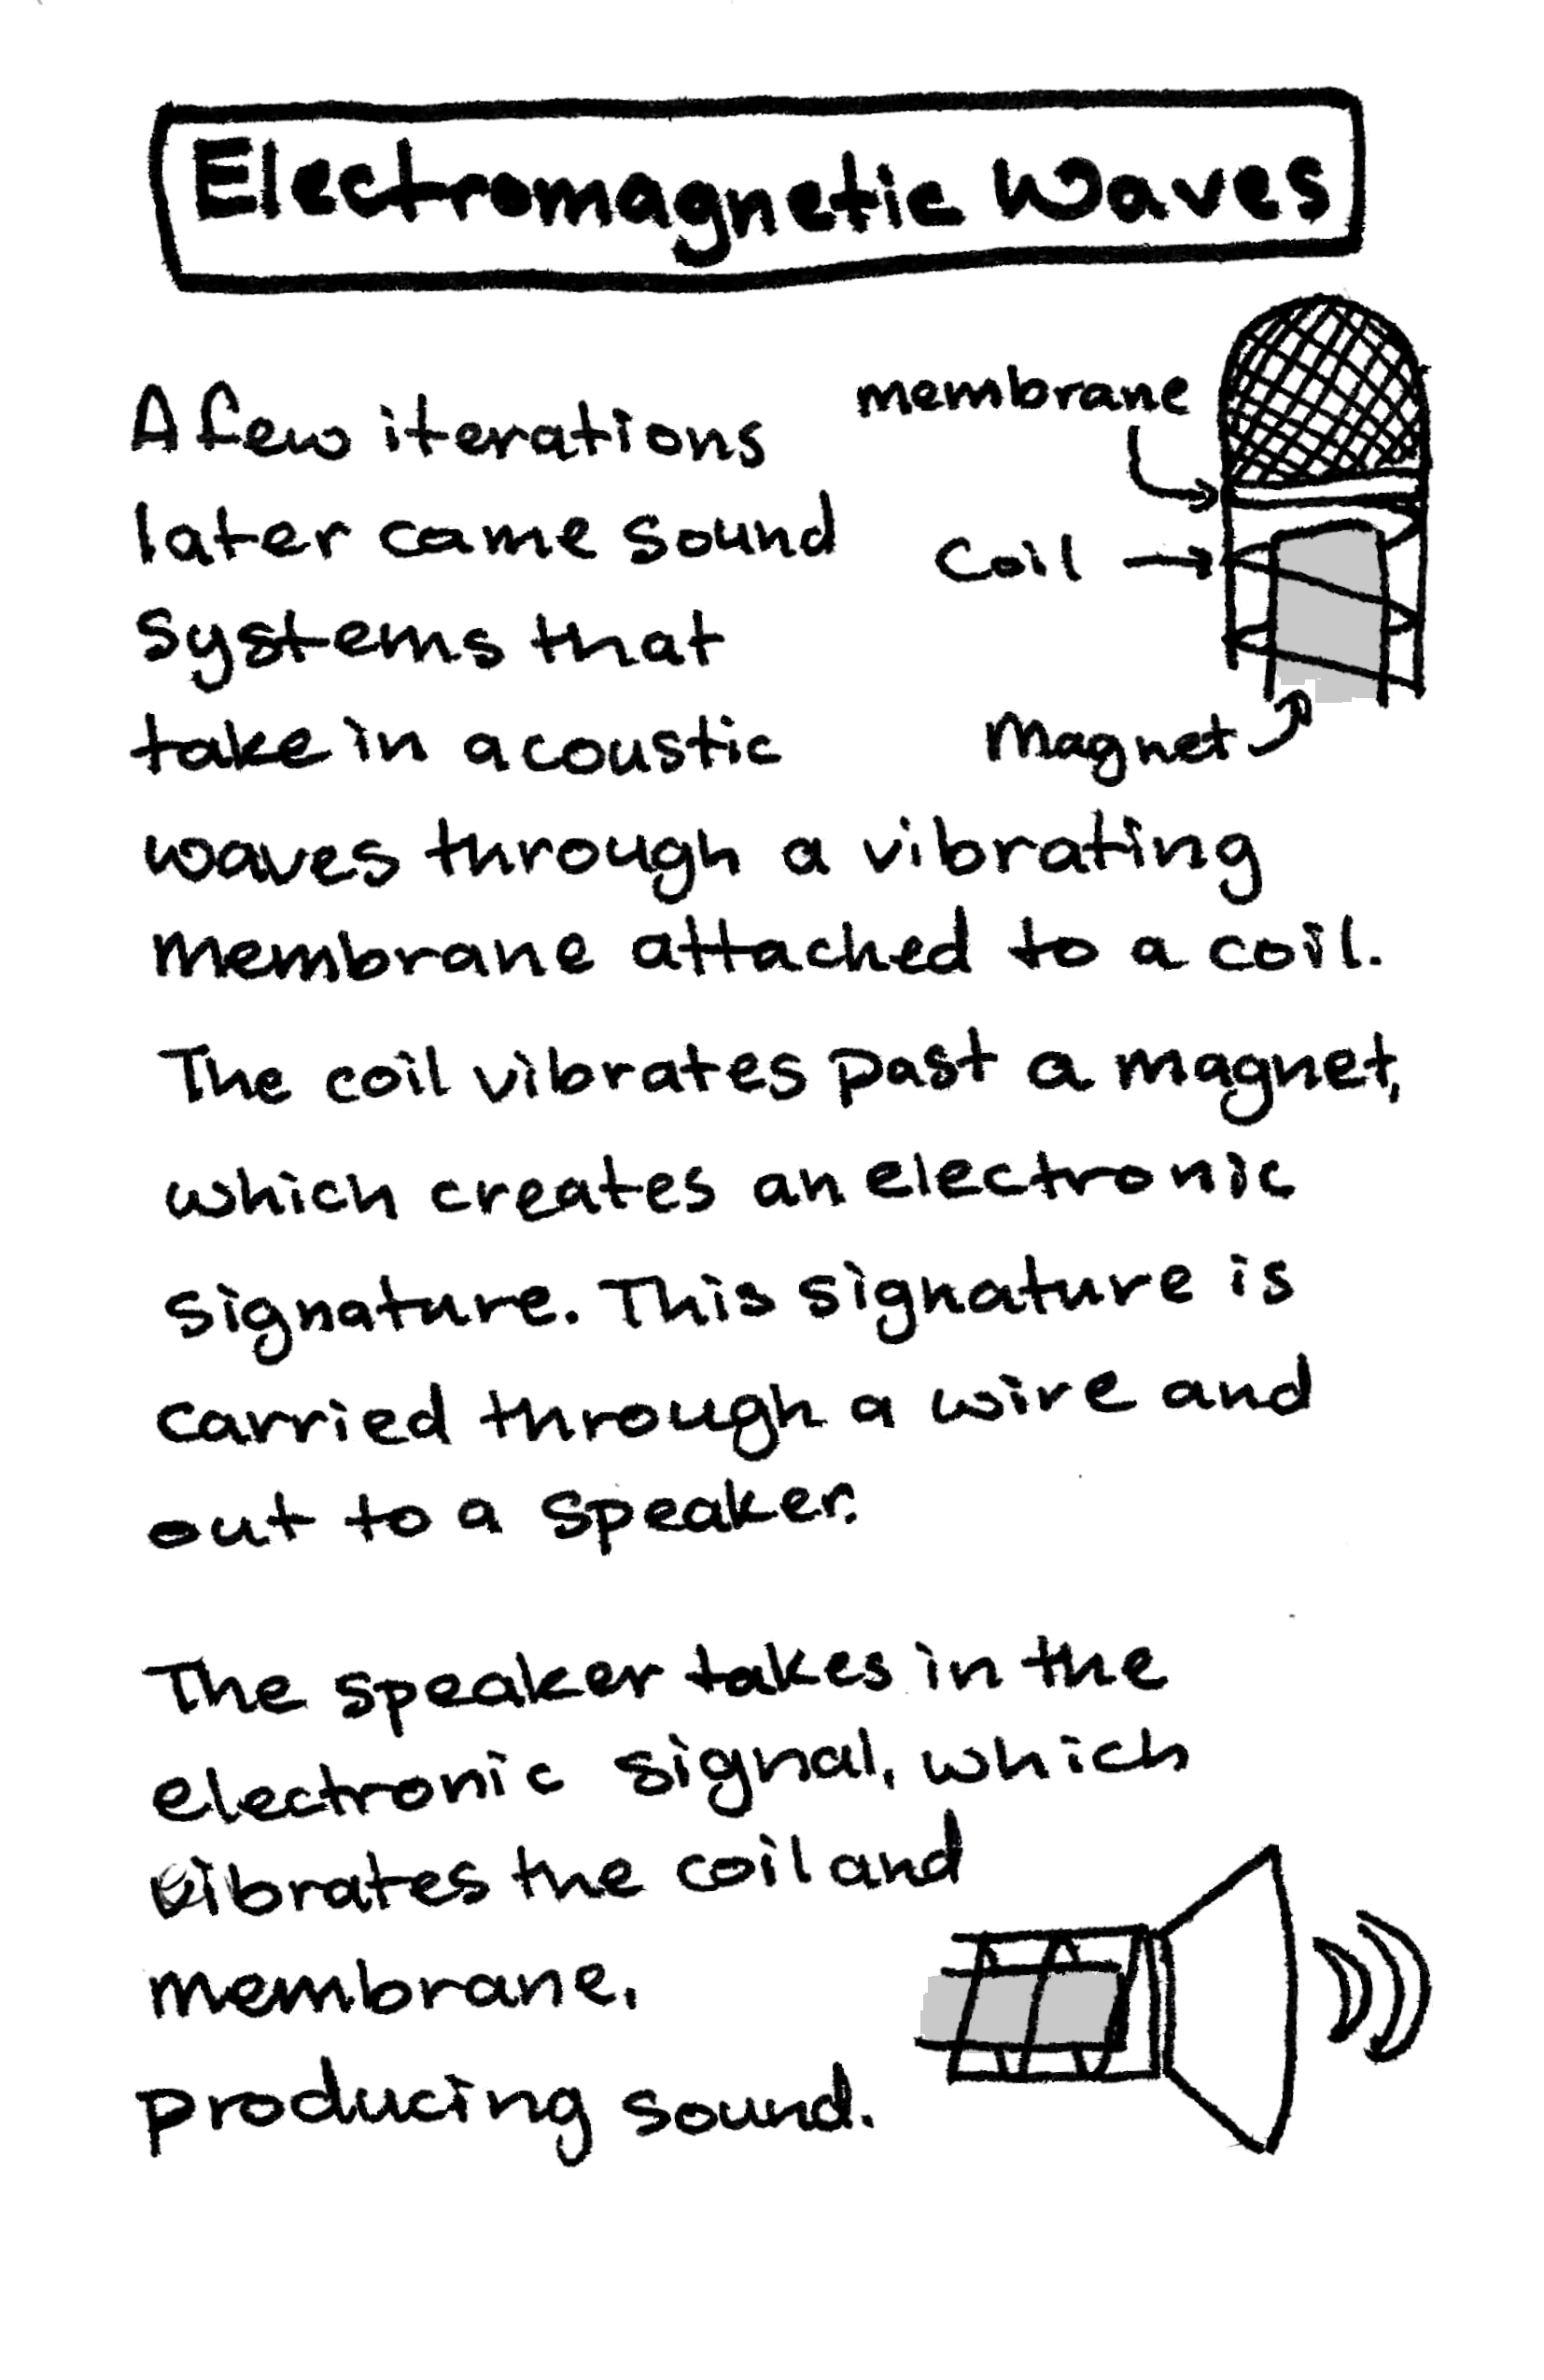 Electromagnetic Waves
A few iterations
later came sound
systems that
take in acoustic
waves through a vibrating
membrane attached to a coil.
The coil vibrates past a magnet,
which creates an electronic
signature. This signature is
carried through a wire and
out to a speaker.
membrane
Coil
Magnet
The speaker takes in the
electronic signal, which
vibrates the coil and
membrane,
producing sound.